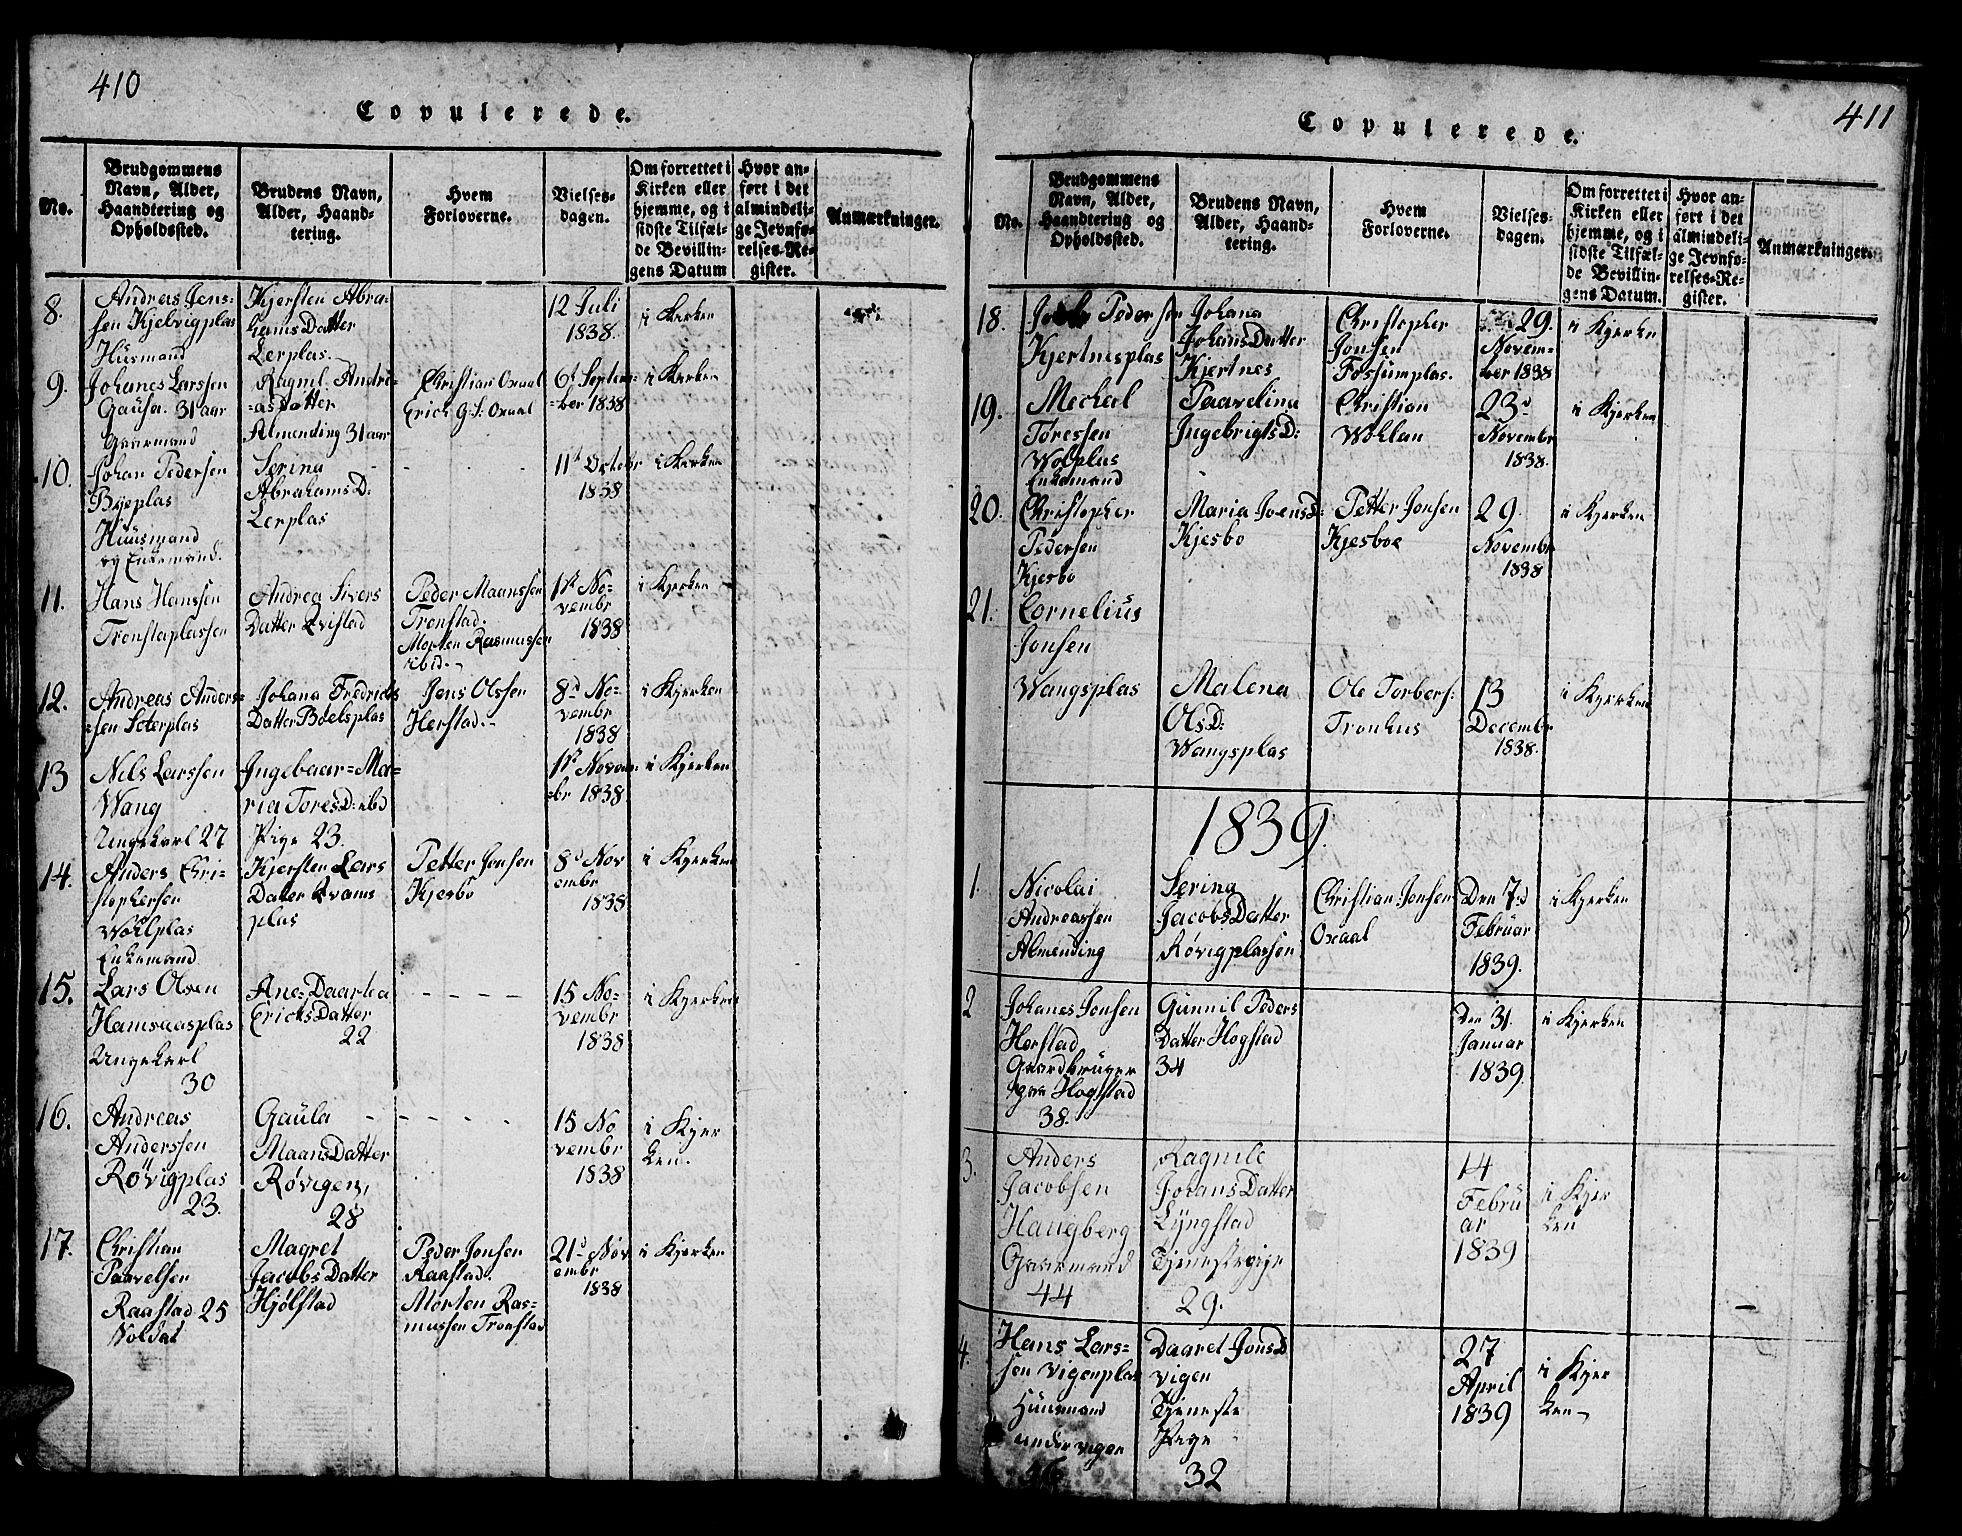 410
Copulerede.
No.
Brudgommens
Navn, Alder,
Haandtering og
Opholdssted.
Brudens Navn,
Alder, Haand-
tering.
Hvem
Forloverne.
Vielses-
dagen.
Om forrettet i
Kirken eller
hjemme, og i
sidste Tilfæl-
de Bevillin-
gens Datum
Hvor an-
ført i det
almindeli-
ge Jevnfø-
relses-Re-
gister.
Anmærkninger.
8.
Andreas Jens-
sen Kjelvigplas
Husmand
Kjersten Abra-
hams Datter
Lerplas.
12 Juli
1838.
i Kerken
9.
Johanes Larssen
Gausa. 31 aar
Gaarmand
Ragnil Andre-
=as Datter
Almending 31 aar
Christian Oxaal
Erich G. S. Oxaal
6d Septem=
=ber 1838
i Kerken
10.
Johan Pedersen
Byeplas
Huusmand
og Enkemand.
Serina
Abrahams D:
Lerplas
11t October
1838
i Kerken
11.
Hans Hanssen
Tronstaplassen
Andrea Sivers
Datter Qvistad
Peder Maanssen
Tronstad.
Morten Rasmussen
ibid.
1st No-
vembr
1838
i Kjerken
12.
Andreas Anders-
=sen Seterplas
Johana Fredricks
Datter Boelsplas
Jens Olssen
Herstad.
8d No-
vembr
1838
i Kjerken
13
Nils Larssen
Wang
Ungekarl 27
Ingebaar=Ma=
ria Tores D: ibd
Pige 23.
1st Novem:
=br 1838
i Kjerken
14.
Anders Chri-
stophersen
Wohlplas
Enkemand
Kjersten Lars
Dater Qvams
plas
Petter Jonsen
Kjesbo
8d Nov
embr
1838
i Kjerken
15.
Lars Olsen
Hamsaasplas
Ungekerl
30
Ane=Daartea
Ericks Datter
22
- - - - -
15 No-
vembr
1838
i Kjerken
16.
Andreas
Anderssen
Røvigplas
23.
Gaula
Maans Datter
Røvigen,
28
- - - - -
15 No
vembr
1838
i Kjer
ken.
17.
Christian
Paavelsen
Raastad 25
Soldat
Magret
Jacobs Datter
Hjølstad
Peder Jonsen
Raastad.
Morten Ras=
mussen Tronstad
21d Nov
embr
1838
i Kjerken
411
Copulerede.
No.
Brudgommens
Navn, Alder,
Haandtering og
Opholdssted.
Brudens Navn,
Alder, Haand-
tering.
Hvem
Forloverne.
Vielses-
dagen.
Om forrettet i
Kirken eller
hjemme, og i
sidste Tilfæl-
de Bevillin-
gens Datum.
Hvor an-
ført i det
almindeli-
ge Jevnfø-
relses-Re-
gister.
Anmærkninger.
18.
Pedersen
Kjertnesplas
Johana
Johans Datter
Kjertnes
Christopher
Jonsen
Fossumplas.
29.
Novem=
ber 1838
i Kjerken
19.
Mecheal
Toressen
Wolplas
Enkemand
Paavelina
Ingebrigts D:
Christian
Wohlan
23d
Novembr
1838.
i Kjerken
20.
Christopher
Pedersen
Kjesbo
Maria Joens D:
Kjesbo
Petter Jonsen
Kjesboe
29
Novembr
1838
i Kjerken
21.
Cornelius
Jonsen
Wangsplas
Malena
Ols D:
Wangsplas
Ole Torbers:
Tronhus
13
Decembr
1838.
i Kjerken
1839.
1.
Nicolai
Andreassen
Almending
Serina
Jacobs Datter
Røvigplassen
Christian Jonsen
Oxaal
Den 7d
Februar
1839.
i Kjerken
2
Johanes Jonsen
Herstad
Gaardbruger
paa Hogstad
38.
Gunnil Peders
Datter Hogstad
34
Den 31.
Januar
1839.
i Kjerken
3.
Anders
Jacobsen
Haugberg
Gaarmand
44
Ragnile
Johans Datter
Lyngstad
Tjenestepige
29.
14
Febru
ar
1839
i Kjer
ken
4.
Hans Lars=
sen Vigenplas
Huusmand
under vigen
46
Daaret Jons D
vigen
Tjeneste
Pige
32
27
April
1839
i Kjer
ken